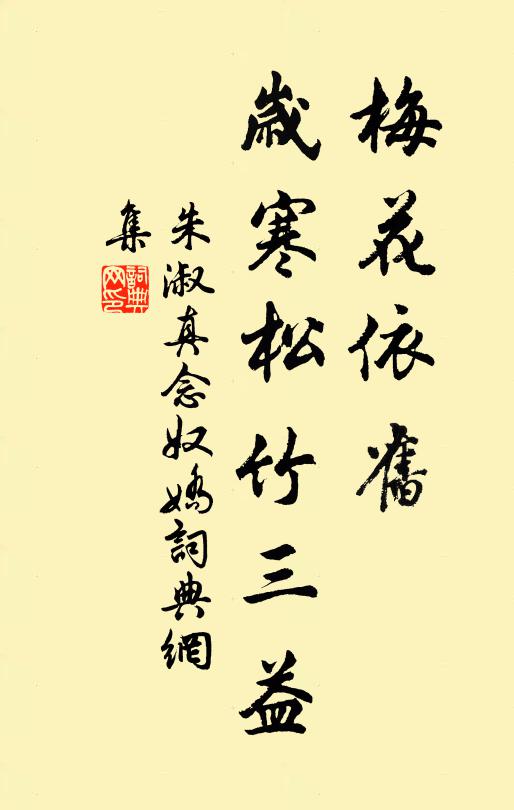 梅花依舊
歲寒松竹三益
朱淑真念奴嬌詞典網
集
詞典網印